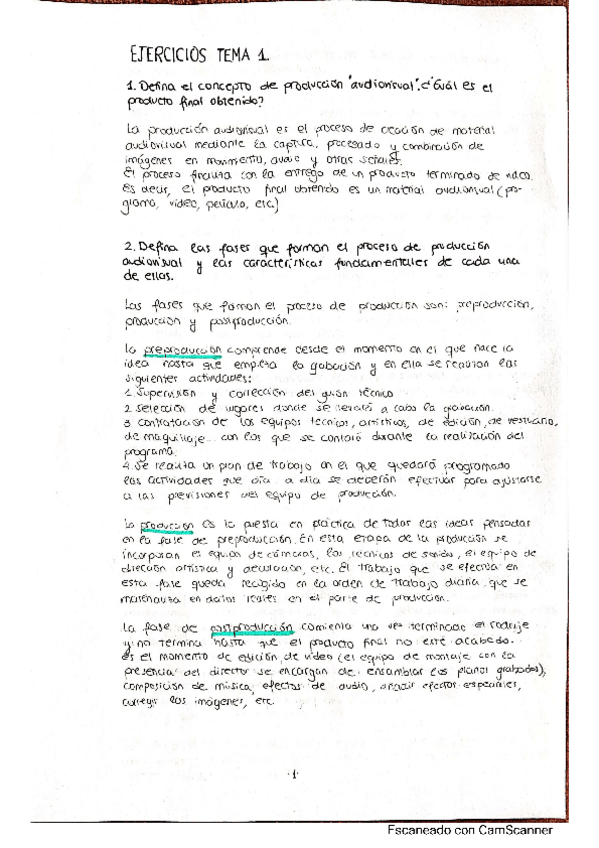 EJERCICIOS TEMA 1.
1. Defina el concepto de producción "audiovisual". ¿Cuál es el
producto final obtenido?
La producción audiovisual es el proceso de creación de material
audiovisual mediante la captura, procesado y combinación de
imágenes en movimiento, audio y otras señales.
El proceso finaliza con la entrega de un producto terminado de vídeo.
Es decir, el producto final obtenido es un material audiovisual (pro-
grama, vídeo, película, etc.)
2. Defina las fases que forman el proceso de producción
audiovisual y las características fundamentales de cada una
de ellas.
Las fases que forman el proceso de producción son: preproducción,
producción y postproducción.
La preproducción comprende desde el momento en el que nace la
idea hasta que empieza la grabación y en ella se realizan las
siguientes actividades:
1. Supervisión y corrección del guión técnico
2. Selección de lugares donde se llevará a cabo la grabación.
3. contratación de los equipos técnicos, artísticos, de edición, de vestuario,
de maquillaje... con los que se contará durante la realización del
programa.
4. Se realiza un plan de trabajo en el que quedará programado
las actividades que día a día se deberán efectuar para ajustarse
a las previsiones del equipo de producción.
La producción es la puesta en práctica de todas las ideas pensadas
en la fase de preproducción. En esta etapa de la producción se
incorporan el equipo de cámaras, los técnicos de sonido, el equipo de
dirección artística y decoración, etc. El trabajo que se efectúa en
esta fase queda recogido en la orden de trabajo diaria, que se
materializa en datos reales en el parte de producción.
La fase de postproducción comienza una vez terminado el rodaje
y no termina hasta que el producto final no esté acabado.
Es el momento de edición de vídeo (el equipo de montaje con la
presencia del director se encargan de ensamblar los planos grabados),
composición de música, efectos de audio, añadir efectos especiales,
corregir las imágenes, etc.
·1·
Escaneado con CamScanner